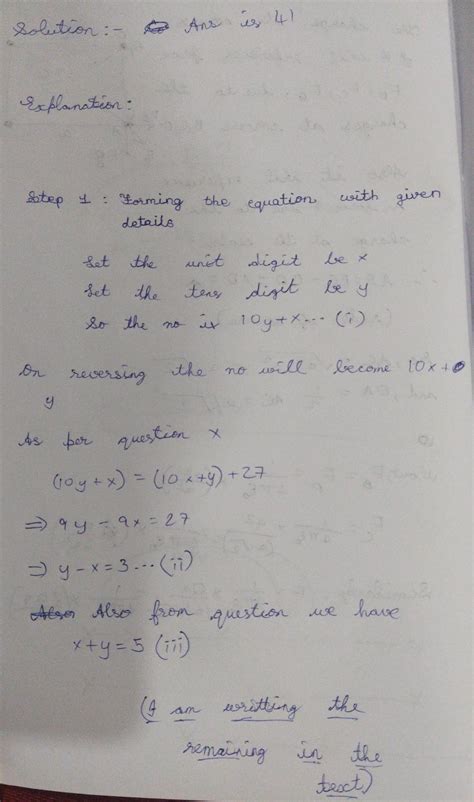 Solution :- Ans is 41
Explanation:
Step 1 : Forming the equation with given
details
Let the unit digit be x
Let the tens digit be y
So the no is 10y+x... (i)
On reversing the no will become 10x+
y
As per question x
(10y+x) = (10x+y)+27
⇒ 9y - 9x = 27
⇒ y-x = 3 ... (ii)
Also Also from question we have
x+y = 5 (iii)
(I am writting the
remaining in the
text)